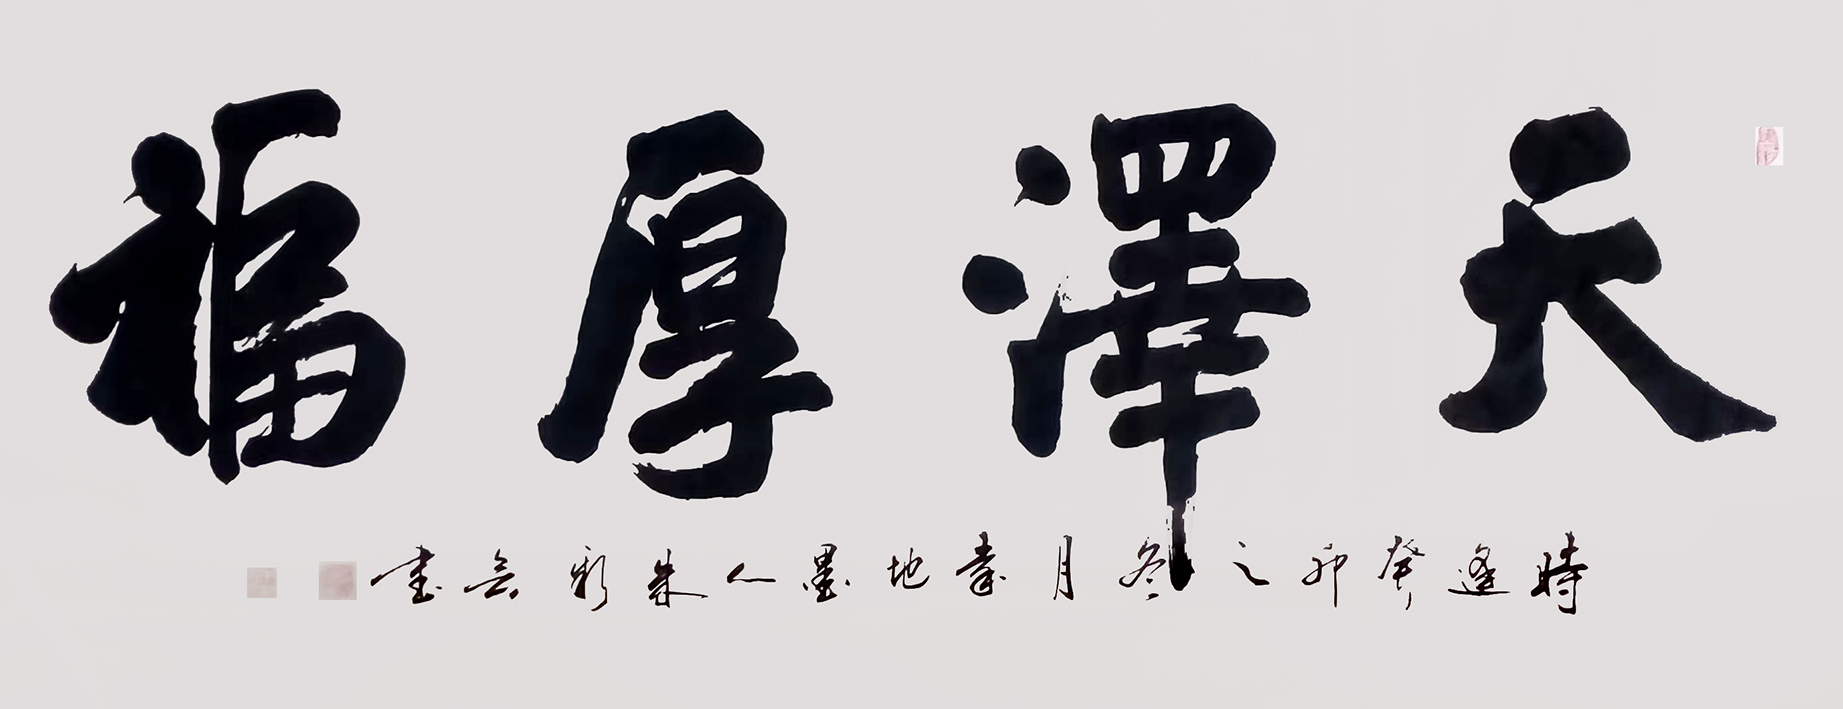 天澤厚福
時逢癸卯之冬月書地墨人朱彩云書